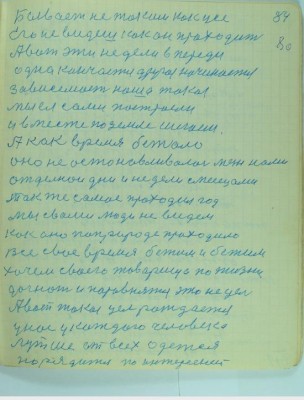 Бывает не таким как все 84
Его не видем как он проходит 80
А вот эти недели впереди
одна кончается другая начинается
Зависемость наша такая
мысл сами построели
и вместе по земле шегаем.
А как время бежало
оно не останавливалос меж нами
отделной дни и недели смесецами
также самое проходил год
мы своими людь не видем
как оно по природе проходило
все свое время бежим и бежим
хочем своего товарища по жизни
догнат и поровнятся это не дел
А вот такая цел рождается
у нас у каждого человека
лутьше от всех одется
нарядится по интересней